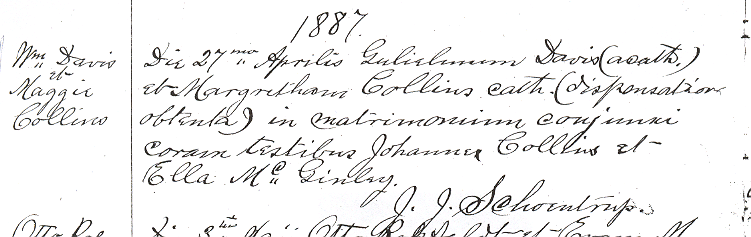 1887.
Wm Davis
et
Maggie
Collins
Die 27mo Aprilis Gulielmum Davis (acath.)
et Margretham Collins cath. (dispensatione
obtenta) in matrimonium conjunxi
coram testibus Johannes Collins et
Ella McGinley.
J. J. Schoentrup.
Otto
Die